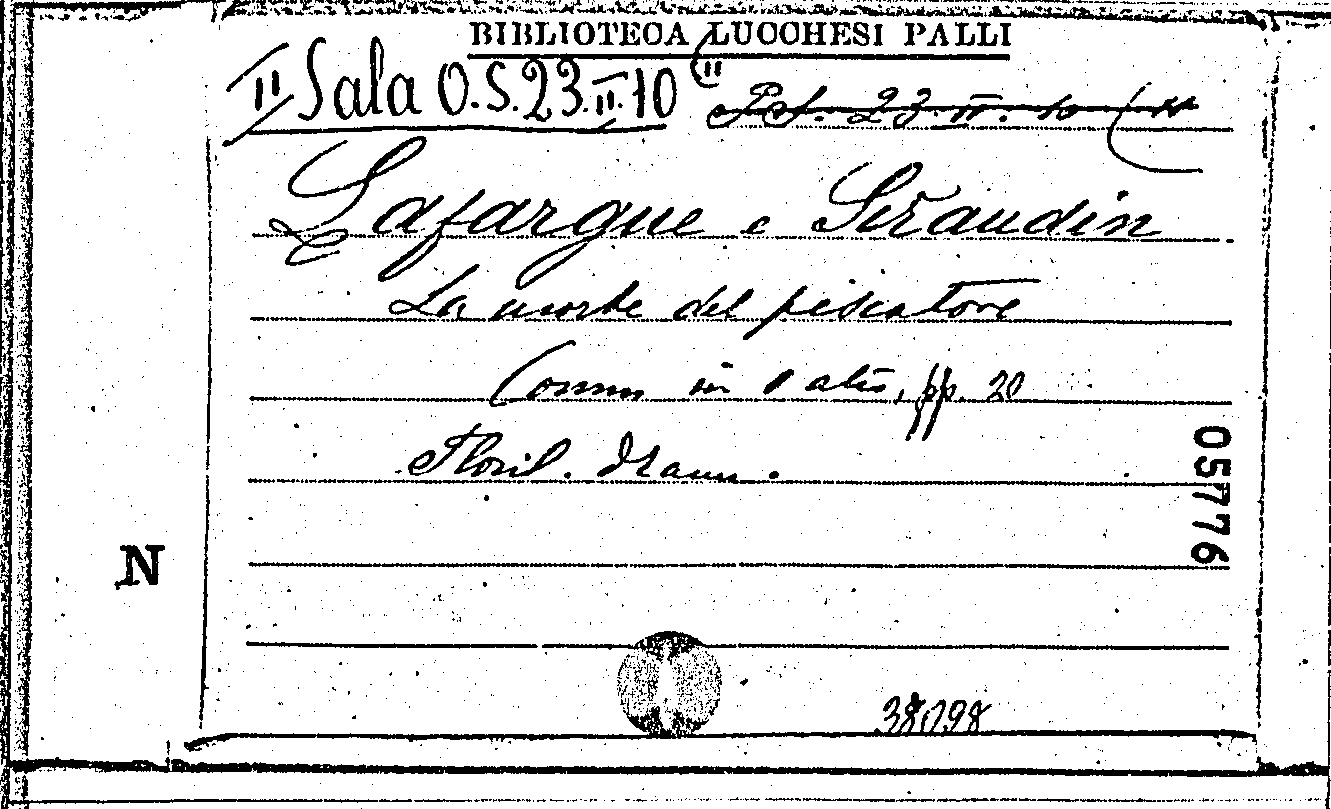 BIBLIOTECA LUCCHESI PALLI
II Sala O.S.23.II.10 (11
23.II.10 (11
Lafargue e Siraudin
La morte del pescatore
Comm in 1 atto, pp. 20
Floril. dramm.
05776
N
38098